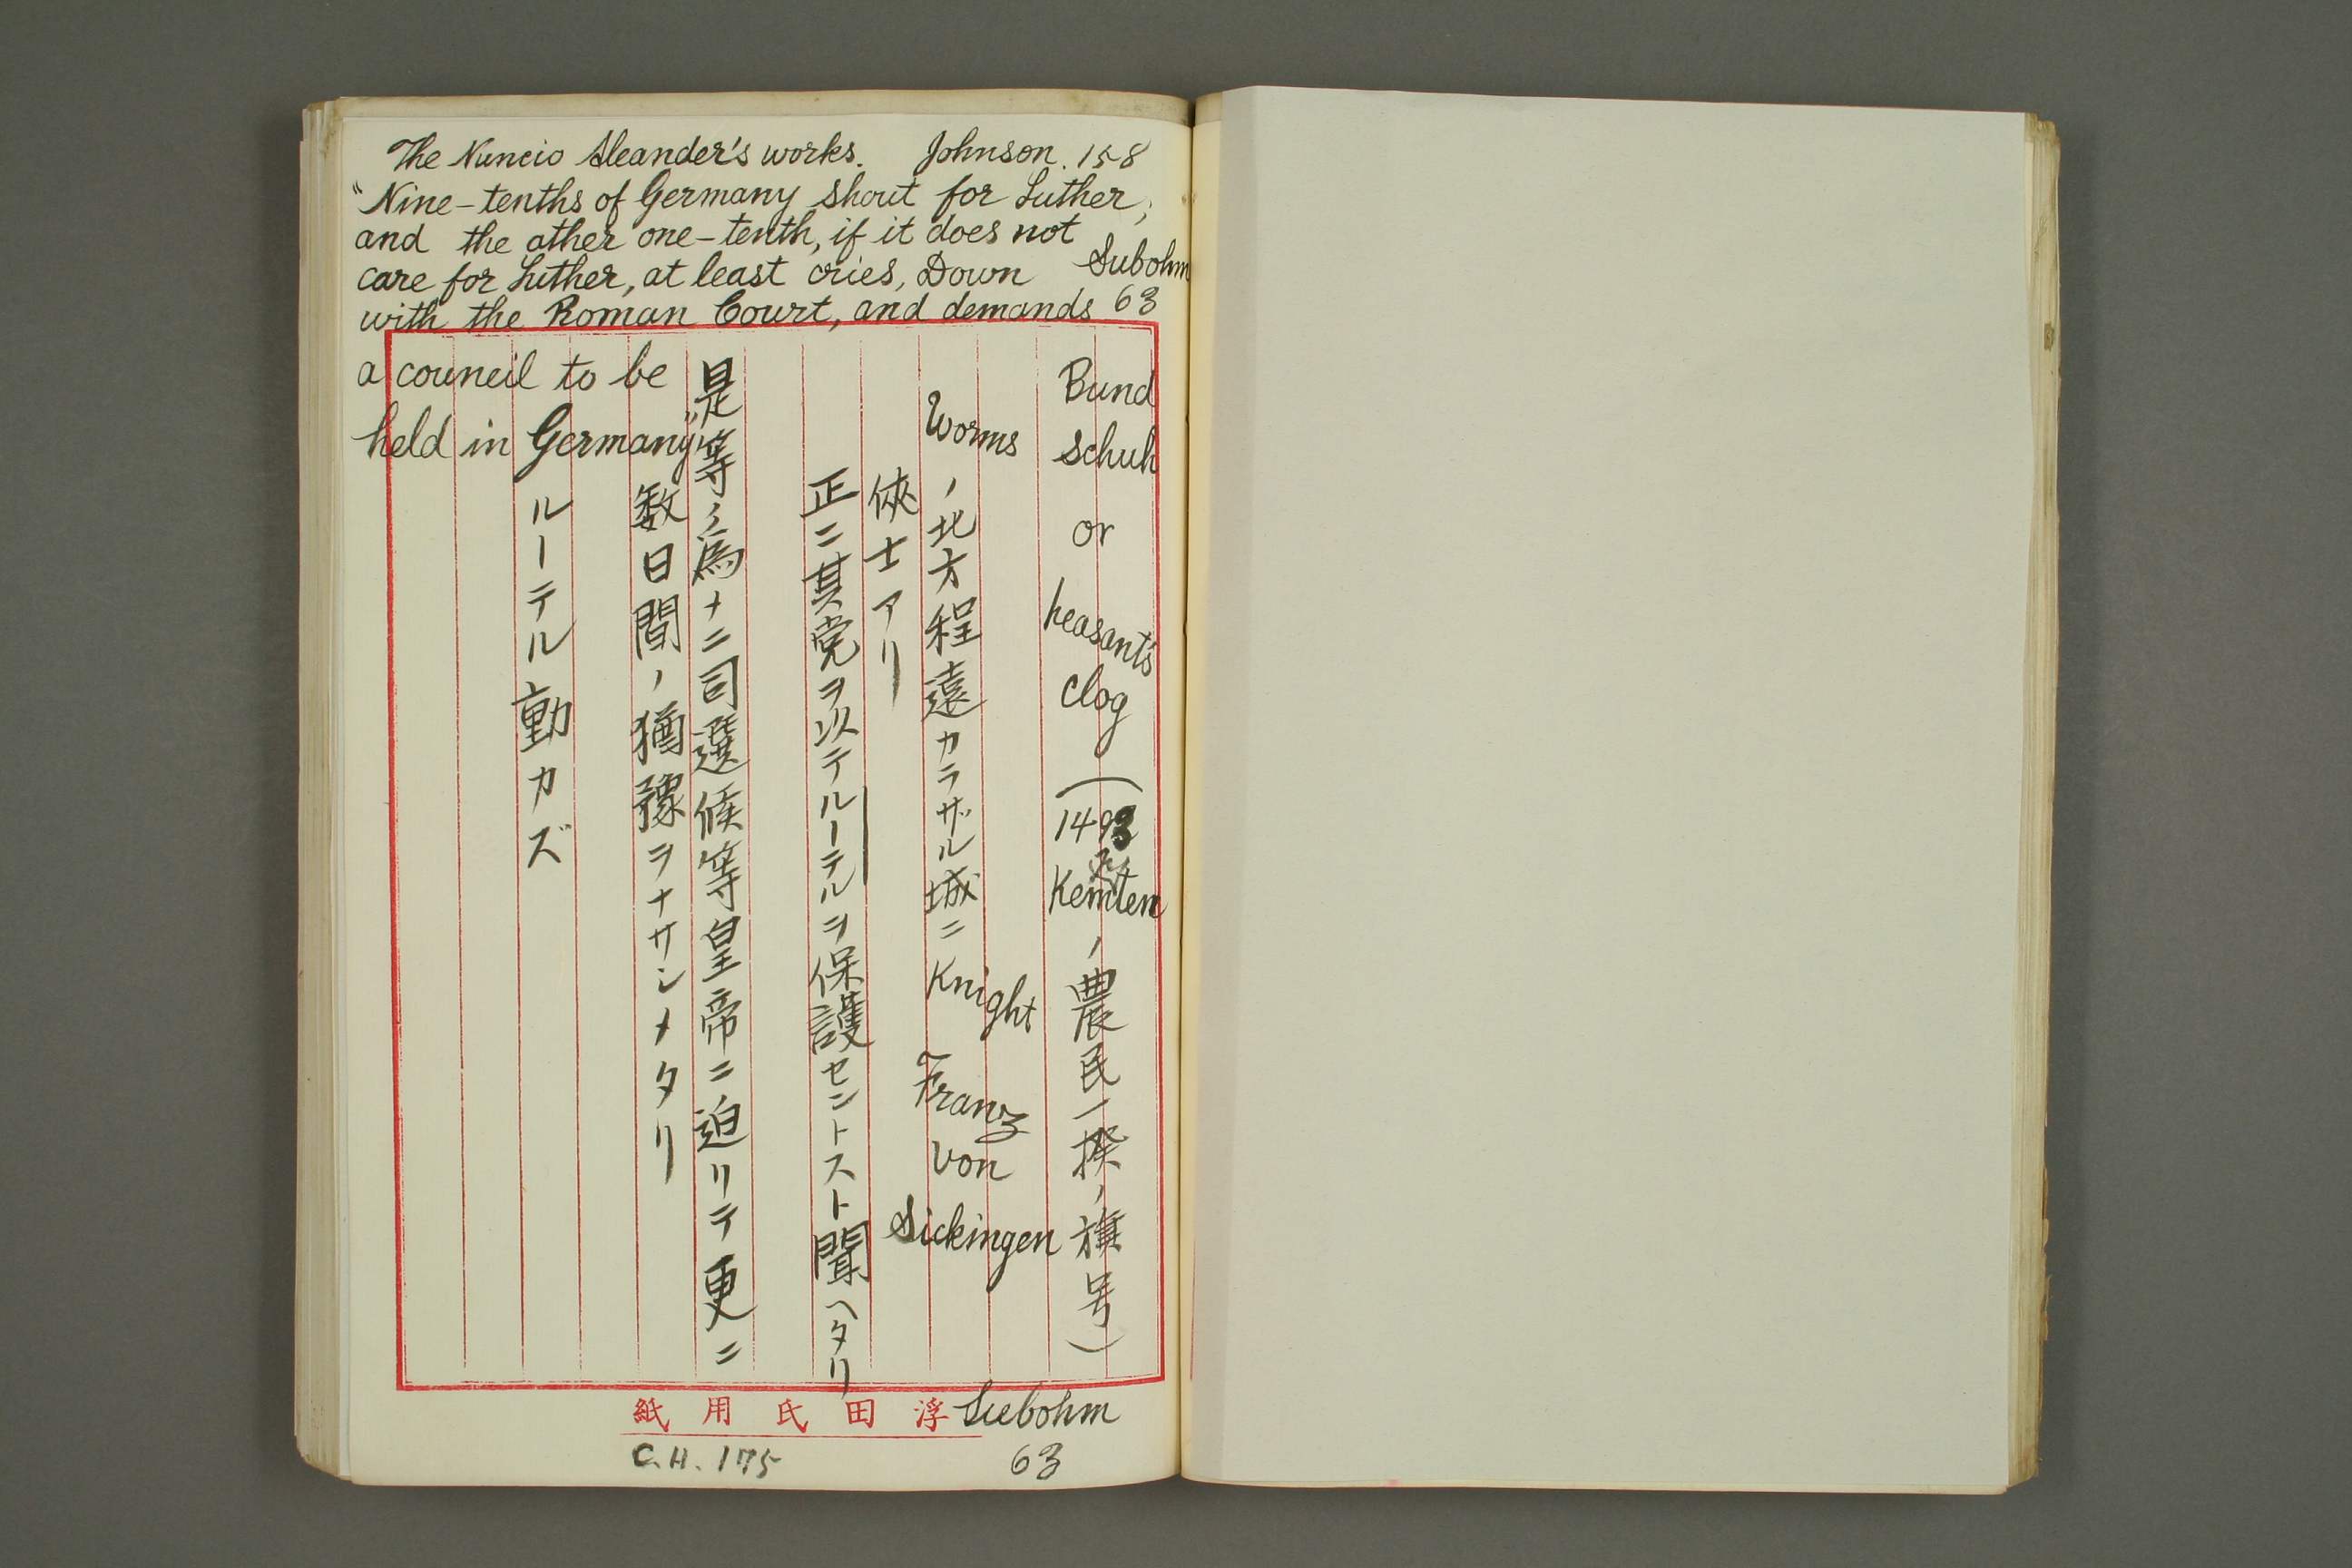 The Nuncio Aleander's works. Johnson. 158
"Nine-tenths of Germany shout for Luther,
and the other one-tenth, if it does not
care for Luther, at least cries, Down
with the Roman Court, and demands
a council to be
held in Germany"
Subohm
63
Bund
schuh
or
peasant's
clog
(1493
Kemten
ノ農民一揆ノ旗号)
Worms
ノ北方程遠カラザル城ニ
Knight
Franz
von
Sickingen
侠士アリ
正ニ其党ヲ以テルーテルヲ保護セントスト聞ヘタリ
是等ノ為ナニ司選候等皇帝ニ迫リテ更ニ
数日間ノ猶豫ヲナサシメタリ
ルーテル動カズ
浮田氏用紙
Seebohm
63
C.H. 175